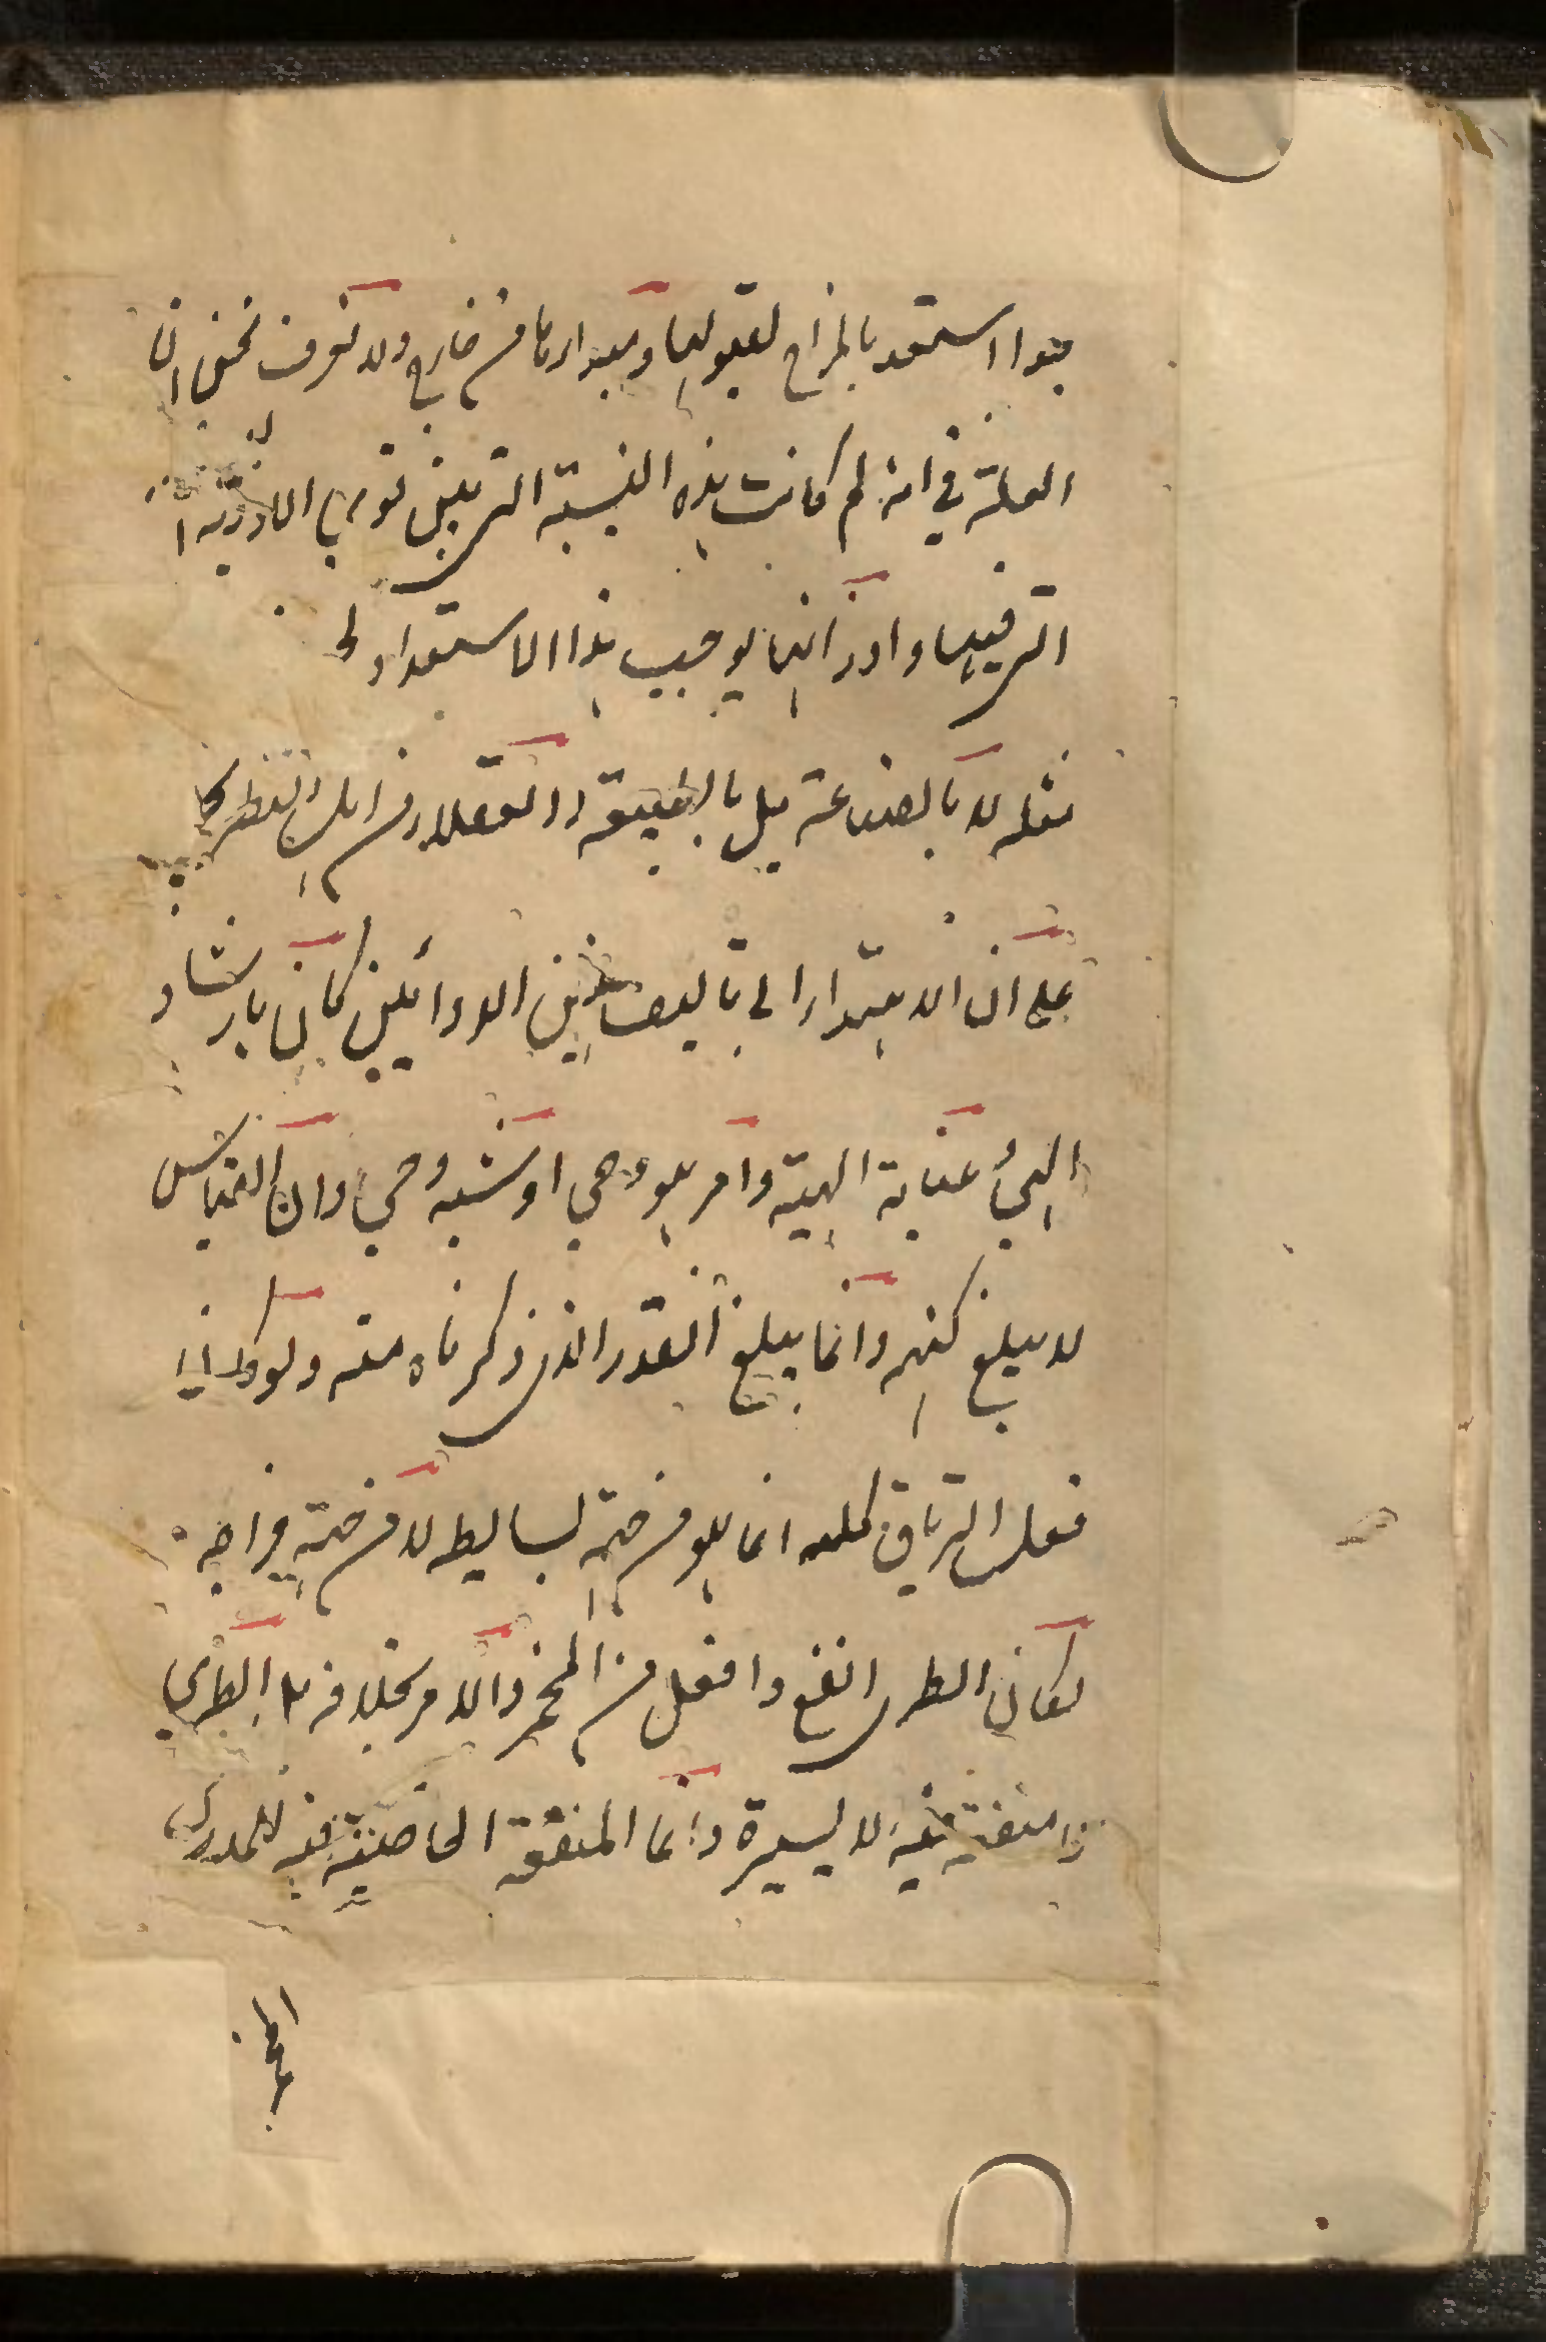 هو ما استعد بالمزاج لقبولها ومبدأها من خارج ولا نعرف نحن ان
العلة في انه لم كانت هذه النسبة التي بين قوى الادوية
التي فيها واوزانها يوجب هذا الاستعداد
مثله لا بالصناعة بل بالطبيعة والعقلاء من اهل النظر
على ان الابتداء الى تاليف هذين الدوائين كان بارشاد
الهي وعناية الهية وامر هو وحي او شبه وحي وان القياس
لا يبلغ كنهه وانما يبلغ القدر الذي ذكرناه منه ولو كان
فعل الترياق كله انما هو من جهة بسايطه لا من جهة مزاجه
لكان الطري انفع وافعل من المخمر والامر بخلافه الطري
منفعته الا يسيرة وانما المنفعة الخاصية فيه للمدرك
المخمر